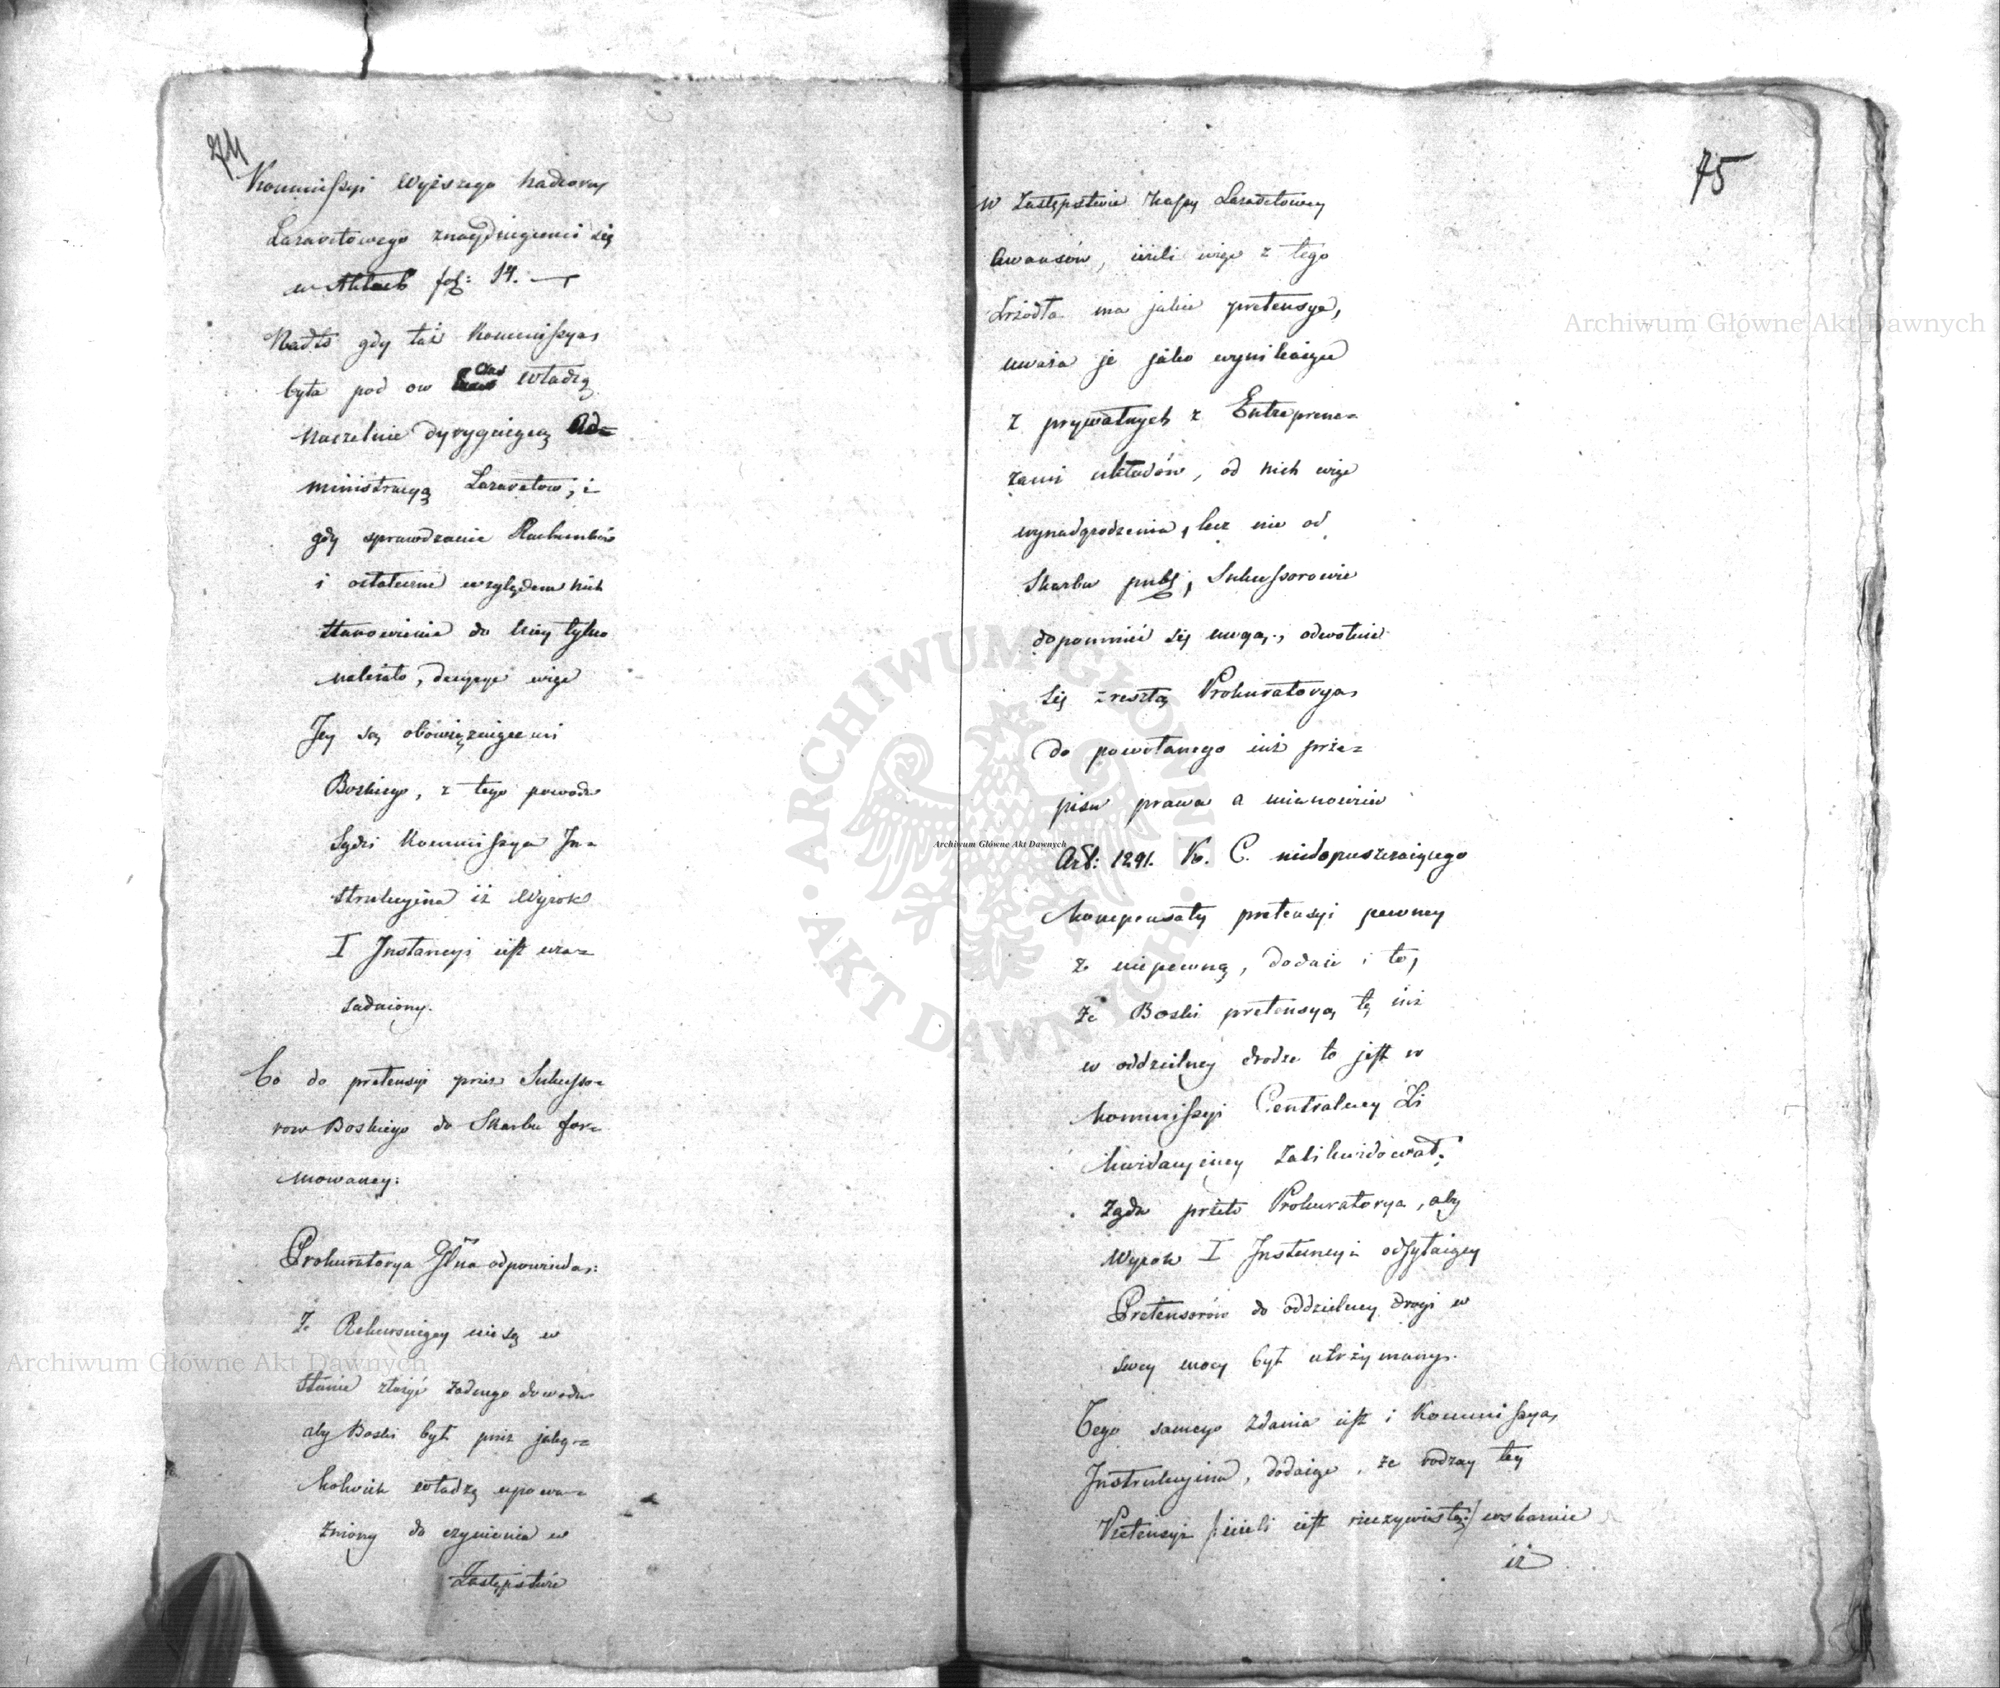 74
Kommissyi Wyższego Nadzoru
Lazaretowego znayduiącemi się
w Aktach fol: 14. —
Nadto gdy taż Kommissya
była pod ow Czas Władzą
naczelnie dyryguiącą Ad=
ministracyą Lazaretow, i
gdy sprawdzanie Rachunków
i ostateczne względem nich
stanowienie do niey tylko
należało, decyzye więc
Jey są obowięzuiącemi
Boskiego, z tego powodu
Sądzi Kommissya In=
strukcyina iż Wyrok
I Instancyi iest uza=
sadniony.
Co do pretensyi przez Sukcesso=
row Boskiego do Skarbu for=
mowaney:
Prokuratorya Głna odpowiada:
Że Rekursuiący nie są w
stanie złożyć żadnego dowodu
aby Boski był przez jaką=
kolwiek władzę upowa=
żniony do czynienia w
Zastępstwie
75
w Zastępstwie Kassy Lazaretowey
Awansów, ieżeli więc z tego
Źrzódła ma jakie pretensye,
uważa je jako wynikaiące
z prywatnych z Entreprene=
rami układów, od nich więc
wynadgrodzenia, lecz nie od
Skarbu publ; Sukcessorowie
dopomnieć się mogą, odwołuie
się zresztą Prokuratorya
do powołanego iuż prze=
pisu prawa a mianowicie
Art: 1291. K. C. niedopuszczaiącego
kompensaty pretensyi pewney
z niepewną, dodaie i to,
że Boski pretensyą tę iuż
w oddzielney drodze to jest w
Kommissyi Centralney Li
kwidacyiney zalikwidował;
żąda przeto Prokuratorya, aby
Wyrok I Instancyi odsyłaiący
Pretensorów do oddzielney drogi w
swey mocy był utrzymany.
Tego samego zdania iest i Kommissya
Instrukcyina, dodaiąc, że rodzay tey
Pretensyi /ieżeli iest rzeczywistą/ wskazuie
iż
Archiwum Główne Akt Dawnych
Archiwum Główne Akt Dawnych
Archiwum Główne Akt Dawnych
ARCHIWUM GŁÓWNE · AKT DAWNYCH ·